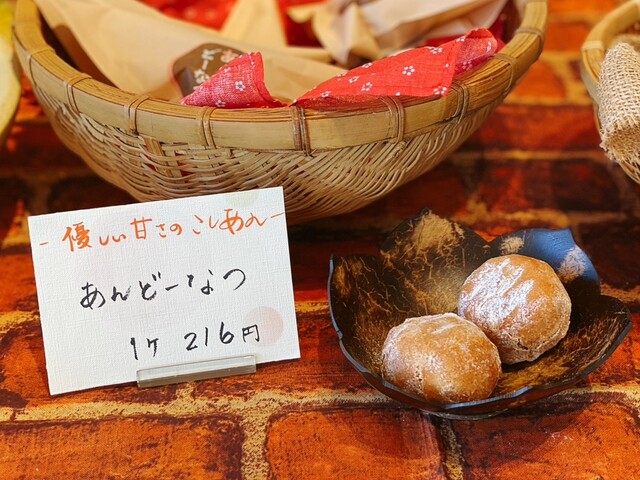 - 優しい甘さのこしあん -
あんどーなつ
1ケ 216円